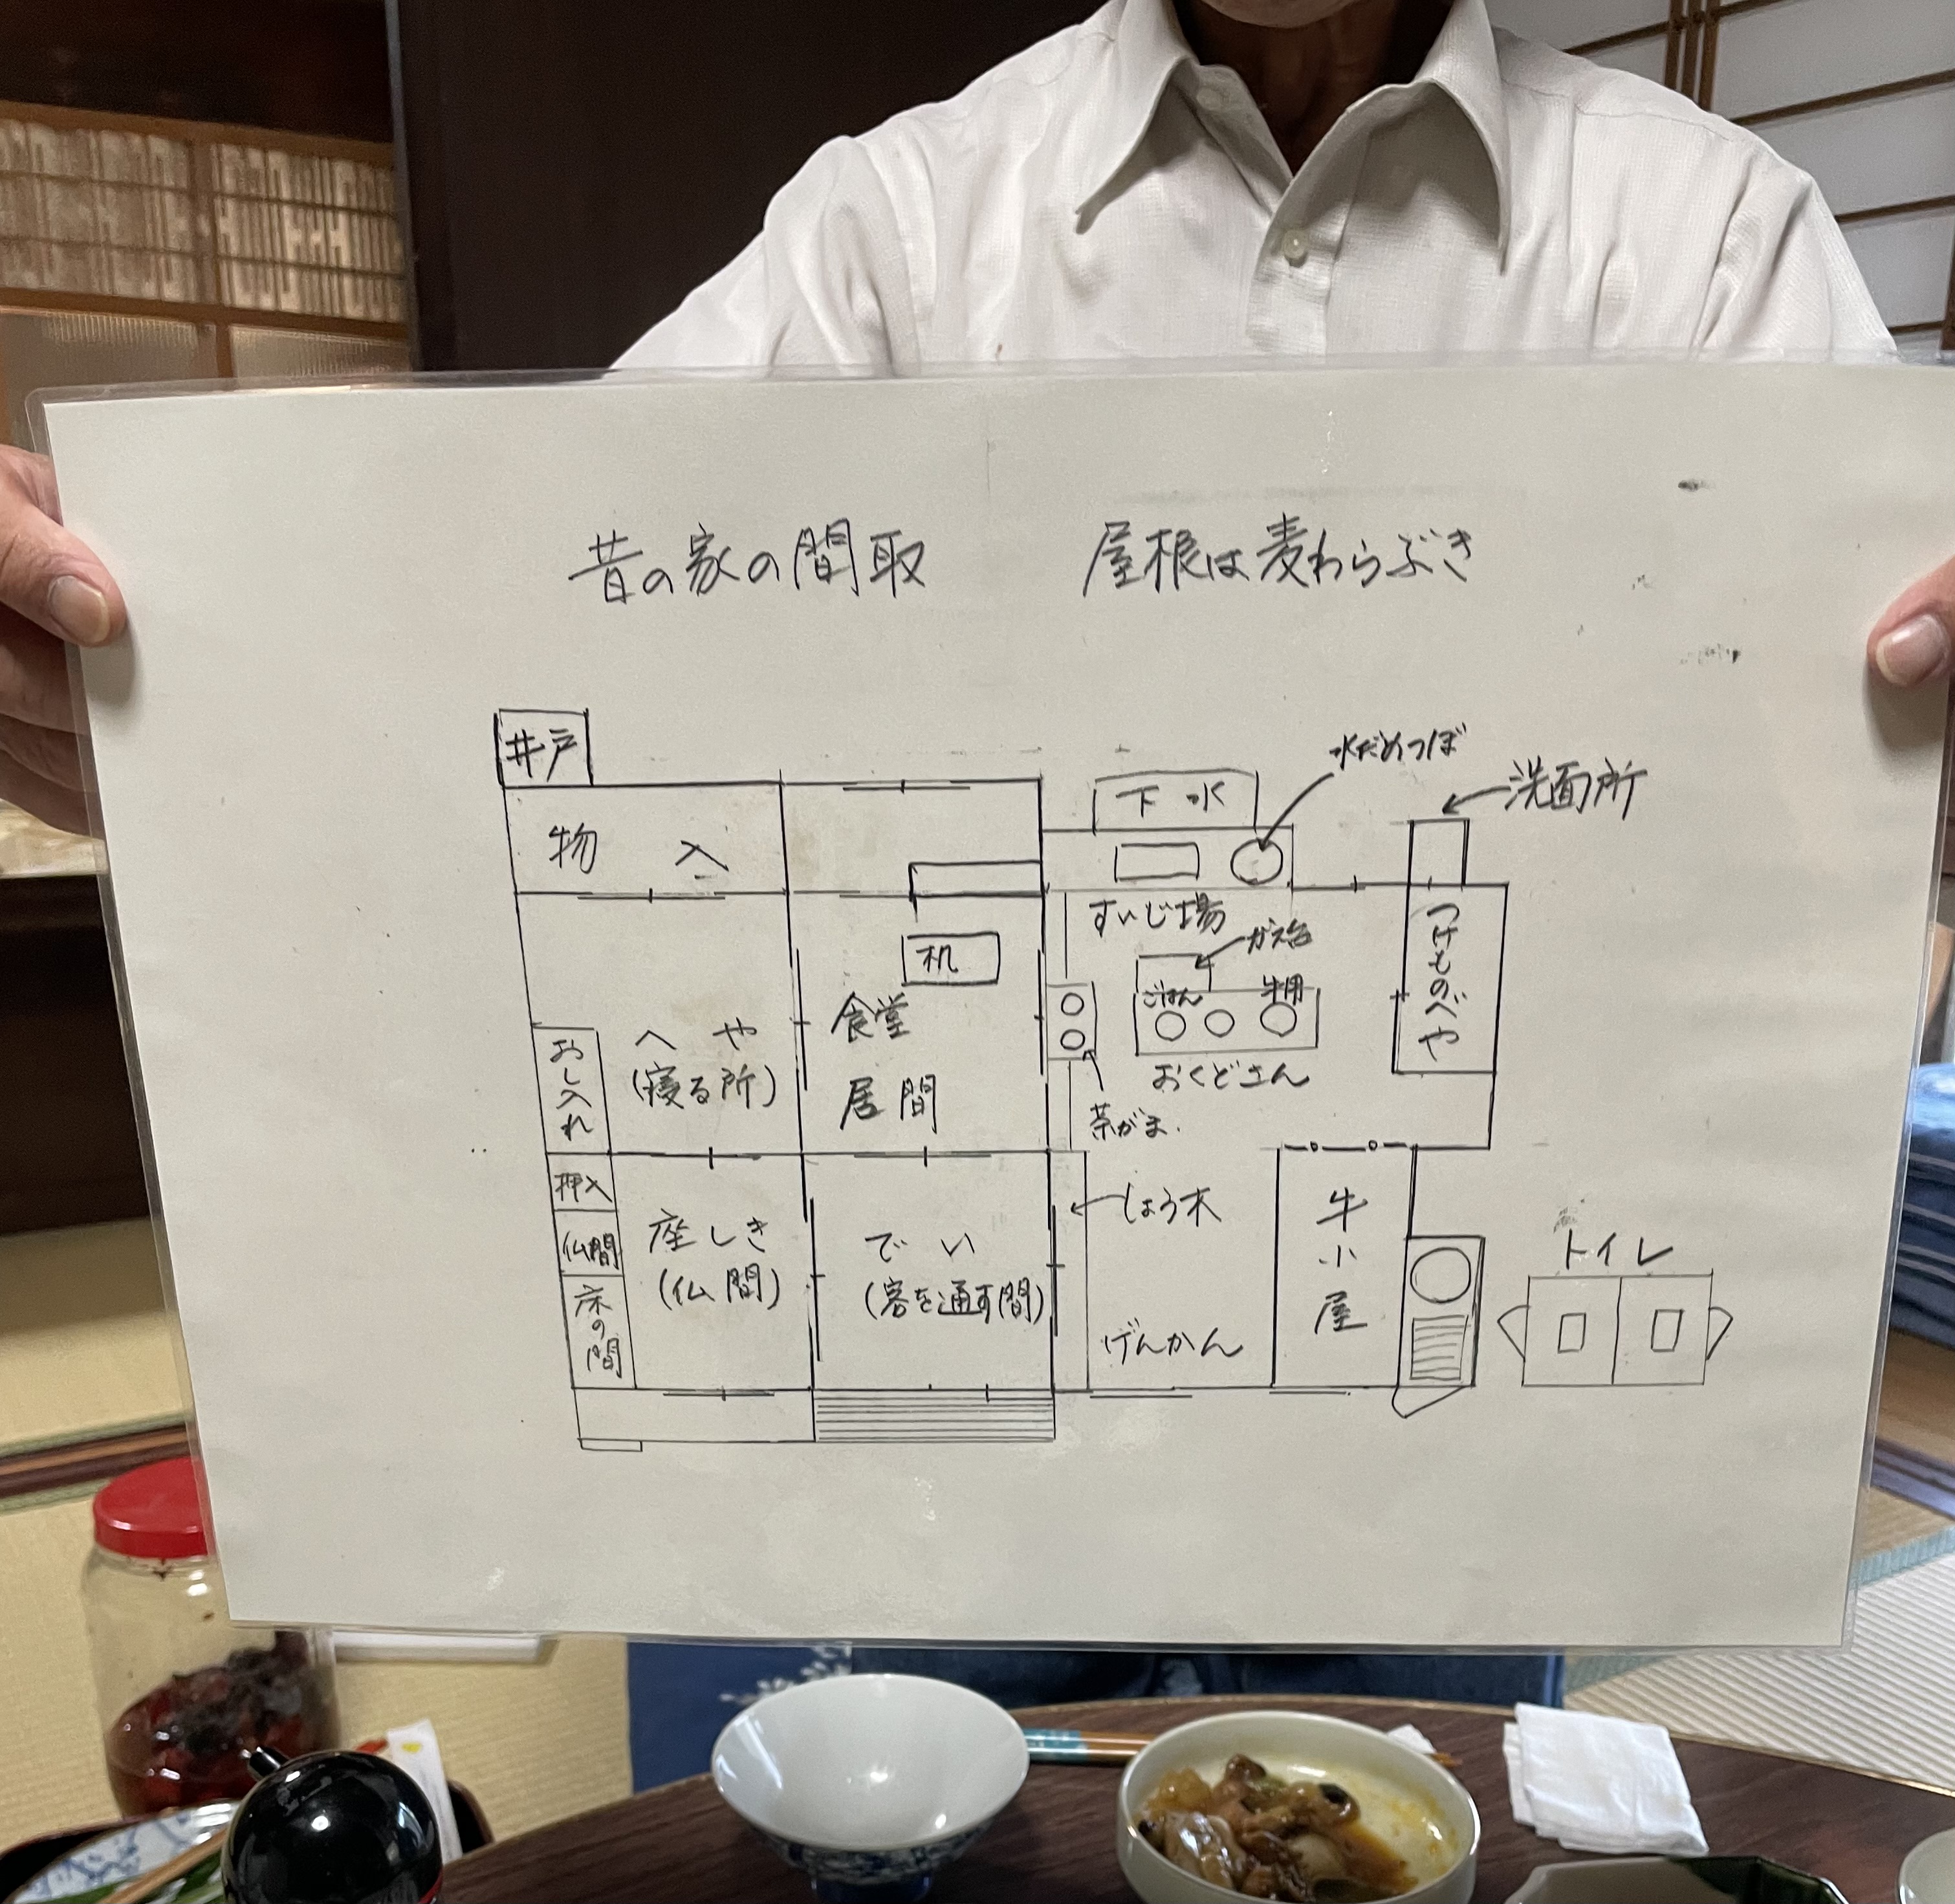 昔の家の間取
屋根は麦わらぶき
井戸
水だめつぼ
洗面所
下水
物入
すいじ場
ガス台
つけものべや
机
ごはん
牛用
食堂
居間
へや
(寝る所)
おし入れ
おくどさん
茶がま.
押入
仏間
床の間
座しき
(仏間)
でい
(客を通す間)
しょう木
げんかん
牛小屋
トイレ